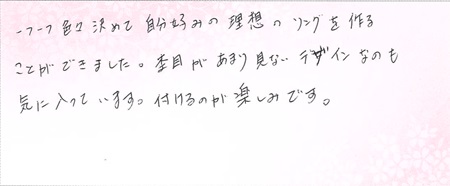 一つ一つ色々決めて自分好みの理想のリングを作る
ことができました。杢目があまり見ないデザインなのも
気に入っています。付けるのが楽しみです。